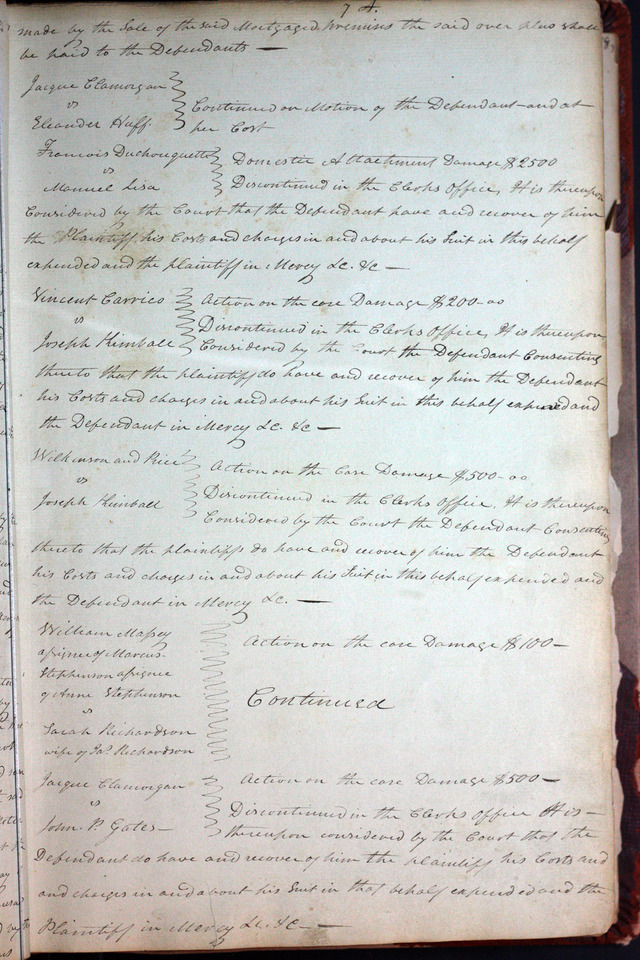 74.
made by the Sale of the said Mortgaged premises the said over plus shall
be paid to the Defendants —
Jacque Clamorgan
vs
Eleander Huff.
Continued on Motion of the Defendant and at
her Cost
Francois Duchouquette
vs
Manuel Lisa
Domestic Attachment Damage $2500
Discontinued in the Clerks Office, It is thereupon
Considered by the Court that the Defendant have and recover of him
the Plaintiff his Costs and charges in and about his Suit in this behalf
expended and the plaintiff in Mercy &c. &c —
Vincent Carrico
vs
Joseph Kimball
Action on the case Damage $200-00
Discontinued in the Clerks Office, It is thereupon
Considered by the Court the Defendant Consenting
thereto that the plaintiff do have and recover of him the Defendant
his Costs and charges in and about his Suit in this behalf expended and
the Defendant in Mercy &c. &c —
Wilkinson and Price
vs
Joseph Kimball
Action on the Case Damage $500-00
Discontinued in the Clerks Office. It is thereupon
Considered by the Court the Defendant Consenting
thereto that the plaintiffs do have and recover of him the Defendant
his Costs and charges in and about his Suit in this behalf expended and
the Defendant in Mercy &c. —
William Massey
assignee of Marcus
Stephenson assignee
of Anne Stephenson
vs
Sarah Richardson
wife of Jas. Richardson
Action on the case Damage $100—
Continued
Jacque Clamorgan
vs
John. P. Gates—
Action on the case Damage $500—
Discontinued in the Clerks office It is —
thereupon considered by the Court that the
Defendant do have and recover of him the plaintiff his Costs and
and charges in and about his Suit in that behalf expended and the
Plaintiff in Mercy &c. &c —